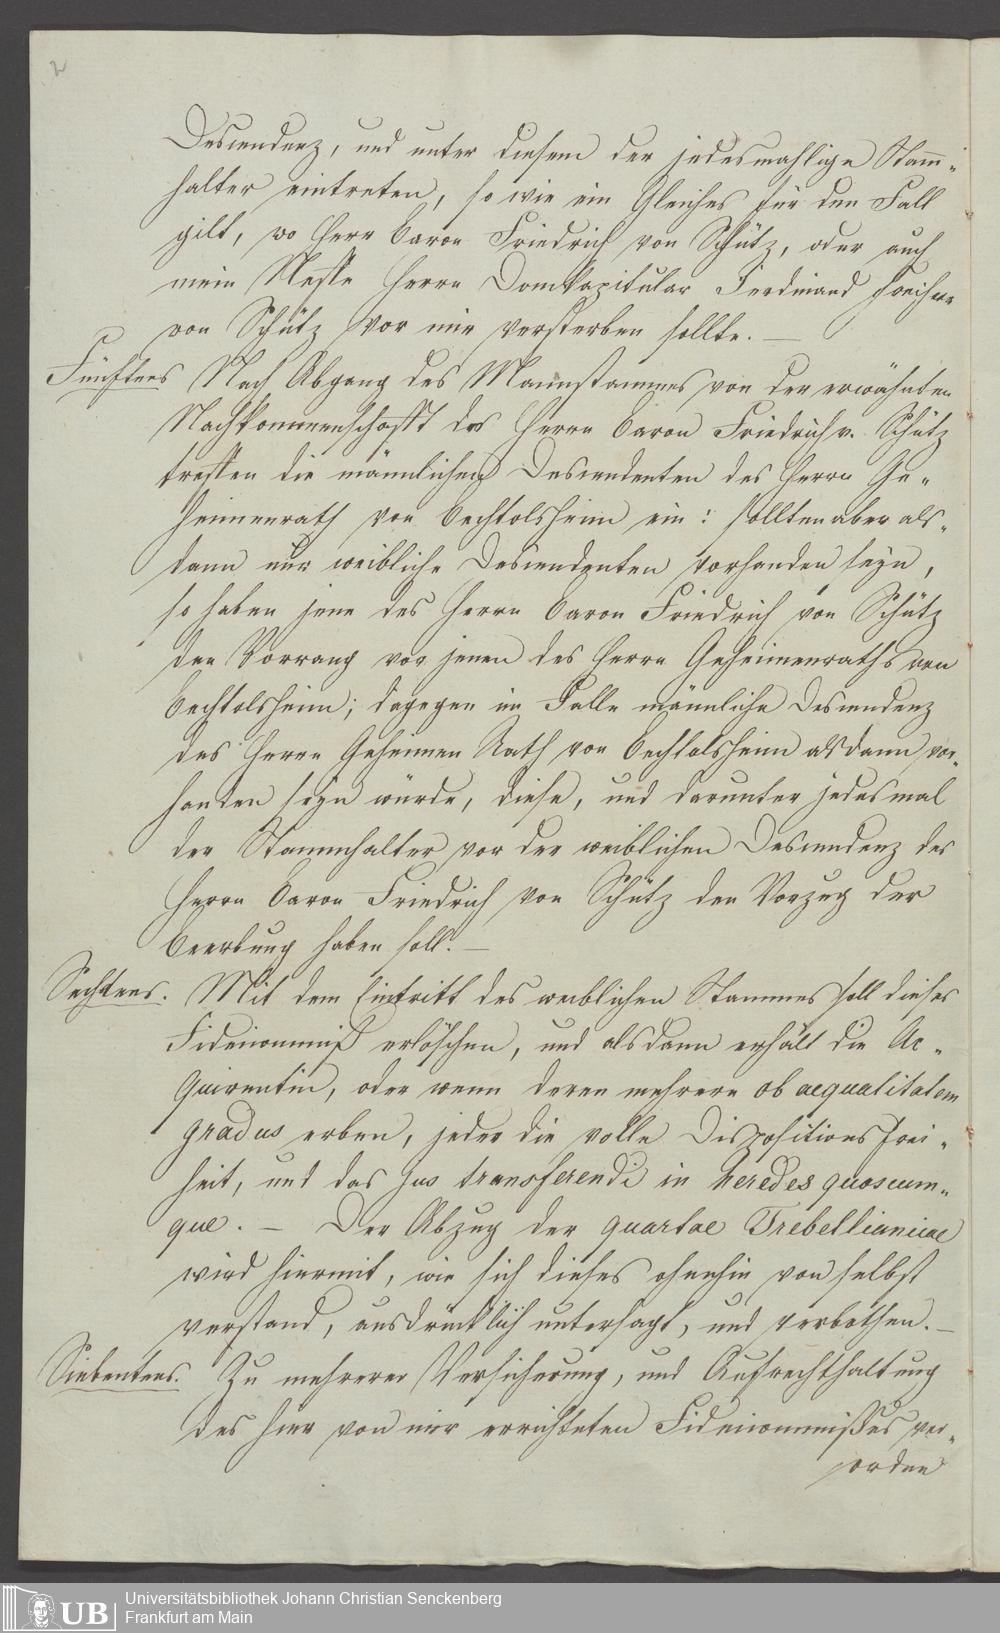 2
Descendenz, und unter diesem der jedesmahlige Stamm-
halter eintreten, so wie ein Gleiches für den Fall
gilt, wo Herr Baron Friedrich von Schütz, oder auch
mein Neffe Herrn Domkapitular Ferdinand Freiherr
von Schütz vor mir versterben sollte. —
Fünftens Nach Abgang des Mannstammes von der erwähnten
Nachkommenschafft des Herrn Baron Friedrich v. Schütz
treffen die männlichen Descendenten des Herrn Ge-
heimenrath von Bechtolsheim ein: sollten aber als-
dann nur weibliche Descendenten vorhanden seyn,
so haben jene des Herrn Baron Friedrich von Schütz
den Vorrang vor jenen des Herrn Geheimenraths von
Bechtolsheim; dagegen im Falle männliche Descendenz
des Herrn Geheimen Rath von Bechtolsheim alsdann vor-
handen seyn würde, diese, und darunter jedesmal
der Stammhalter vor der weiblichen Descendenz des
Herrn Baron Friedrich von Schütz den Vorzug der
Beerbung haben soll. —
Sechstens. Mit dem Eintritt des weiblichen Stammes soll dieses
Fideicommiß erlöschen, und alsdann erhält die Ac-
quirentin, oder wenn deren mehrere ob aequalitatem
gradus erben, jeder die volle Dispositions frei-
heit, und das Jus transferendi in heredes quoscum-
que. — Der Abzug der quartae Trebellianicae
wird hiermit, wie sich dieses ohnehin von selbst
verstand, ausdrücklich untersagt, und verbothen. —
Siebentens. Zu mehrerer Versicherung, und Aufrechthaltung
des hier von mir errichteten Fideicommißes ver-
orden
UB Universitätsbibliothek Johann Christian Senckenberg
Frankfurt am Main